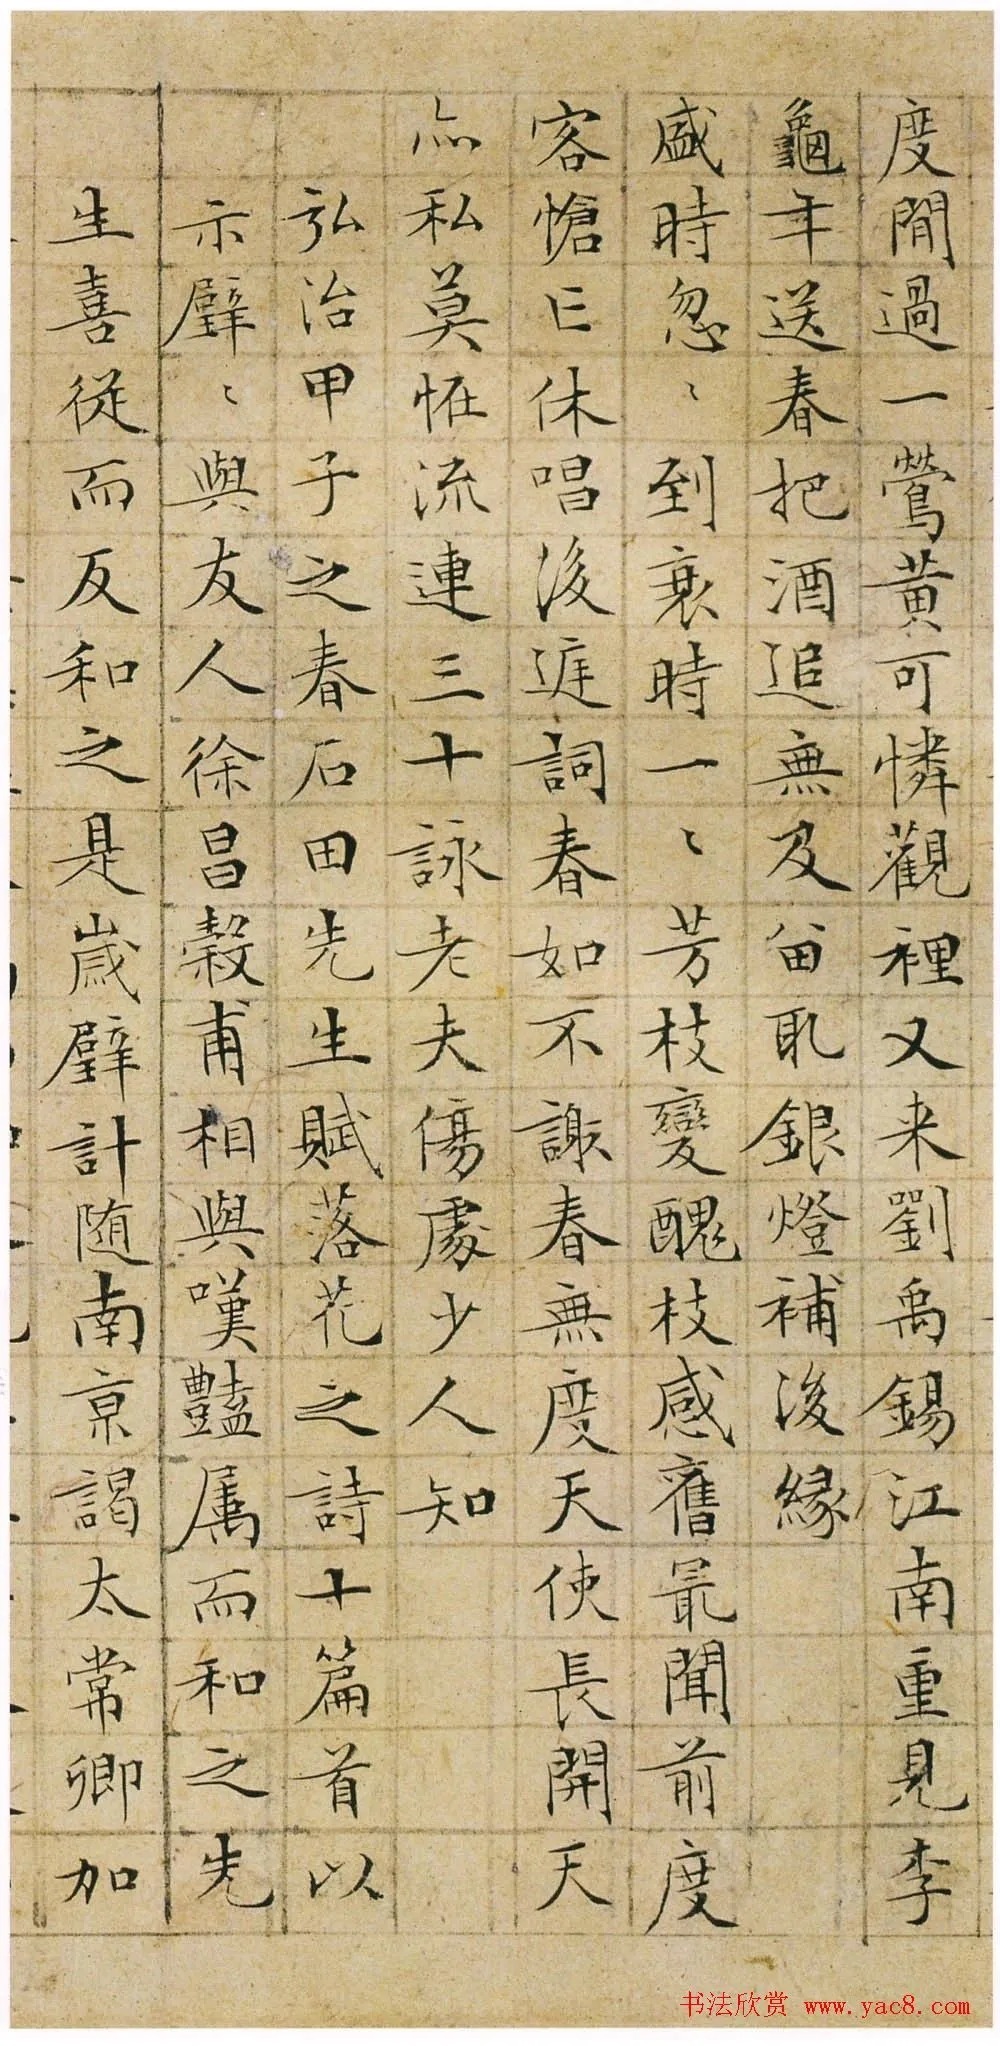 度間過一鶯黃可憐觀裡又来劉禹錫江南重見李
龜年送春把酒追無及留取銀燈補後緣
盛時忽〻到衰時一〻芳枝變醜枝感舊最聞前度
客愴亡休唱後庭詞春如不謝春無度天使長開天
亦私莫怪流連三十詠老夫傷處少人知
弘治甲子之春石田先生賦落花之詩十篇首以
示璧〻與友人徐昌穀甫相與嘆豔屬而和之先
生喜從而反和之是歲璧計随南京謁太常卿加
书法欣赏 www.yac8.com